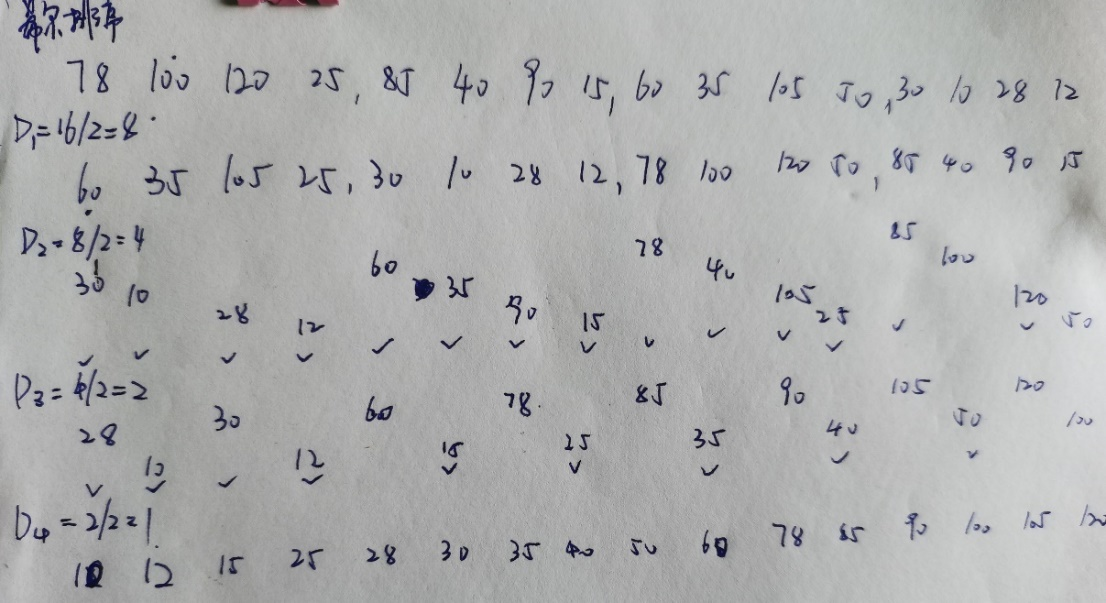 希尔排序
78 100 120 25, 85 40 90 15, 60 35 105 50, 30 10 28 12
D1=16/2=8
60 35 105 25, 30 10 28 12, 78 100 120 50, 85 40 90 15
D2=8/2=4
30 10 28 12 60 35 90 15 78 40 105 25 85 100 120 50
D3=4/2=2
28 10 30 12 60 15 78 25 85 35 90 40 105 50 120 100
D4=2/2=1
10 12 15 25 28 30 35 40 50 60 78 85 90 100 105 120